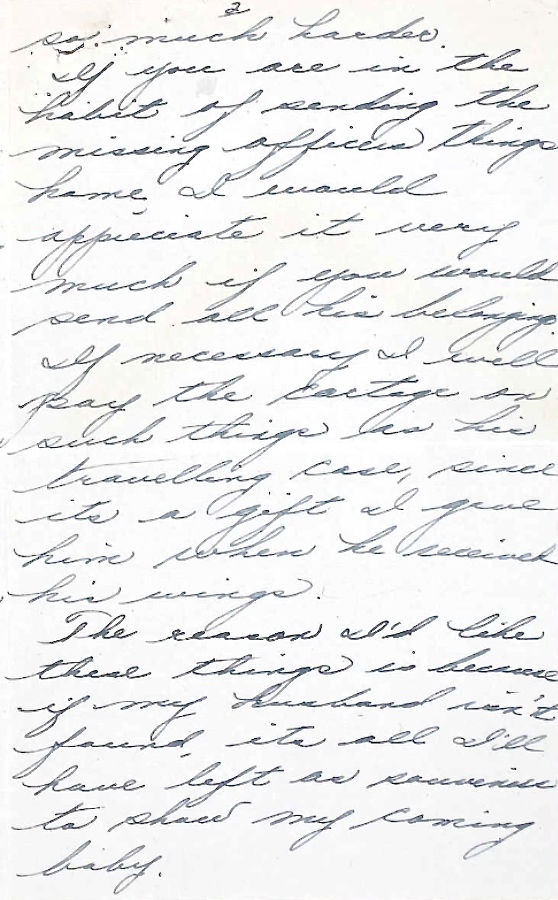 2
so much harder.
If you are in the
habit of sending the
missing officers things
home, I would
appreciate it very
much if you would
send all his belongings
If necessary I will
pay the cartage on
such things as his
travelling case, since
its a gift I gave
him when he received
his wings.
The reason I'd like
these things is because
if my husband isn't
found, its all I'll
have left as souvenirs
to show my coming
baby.